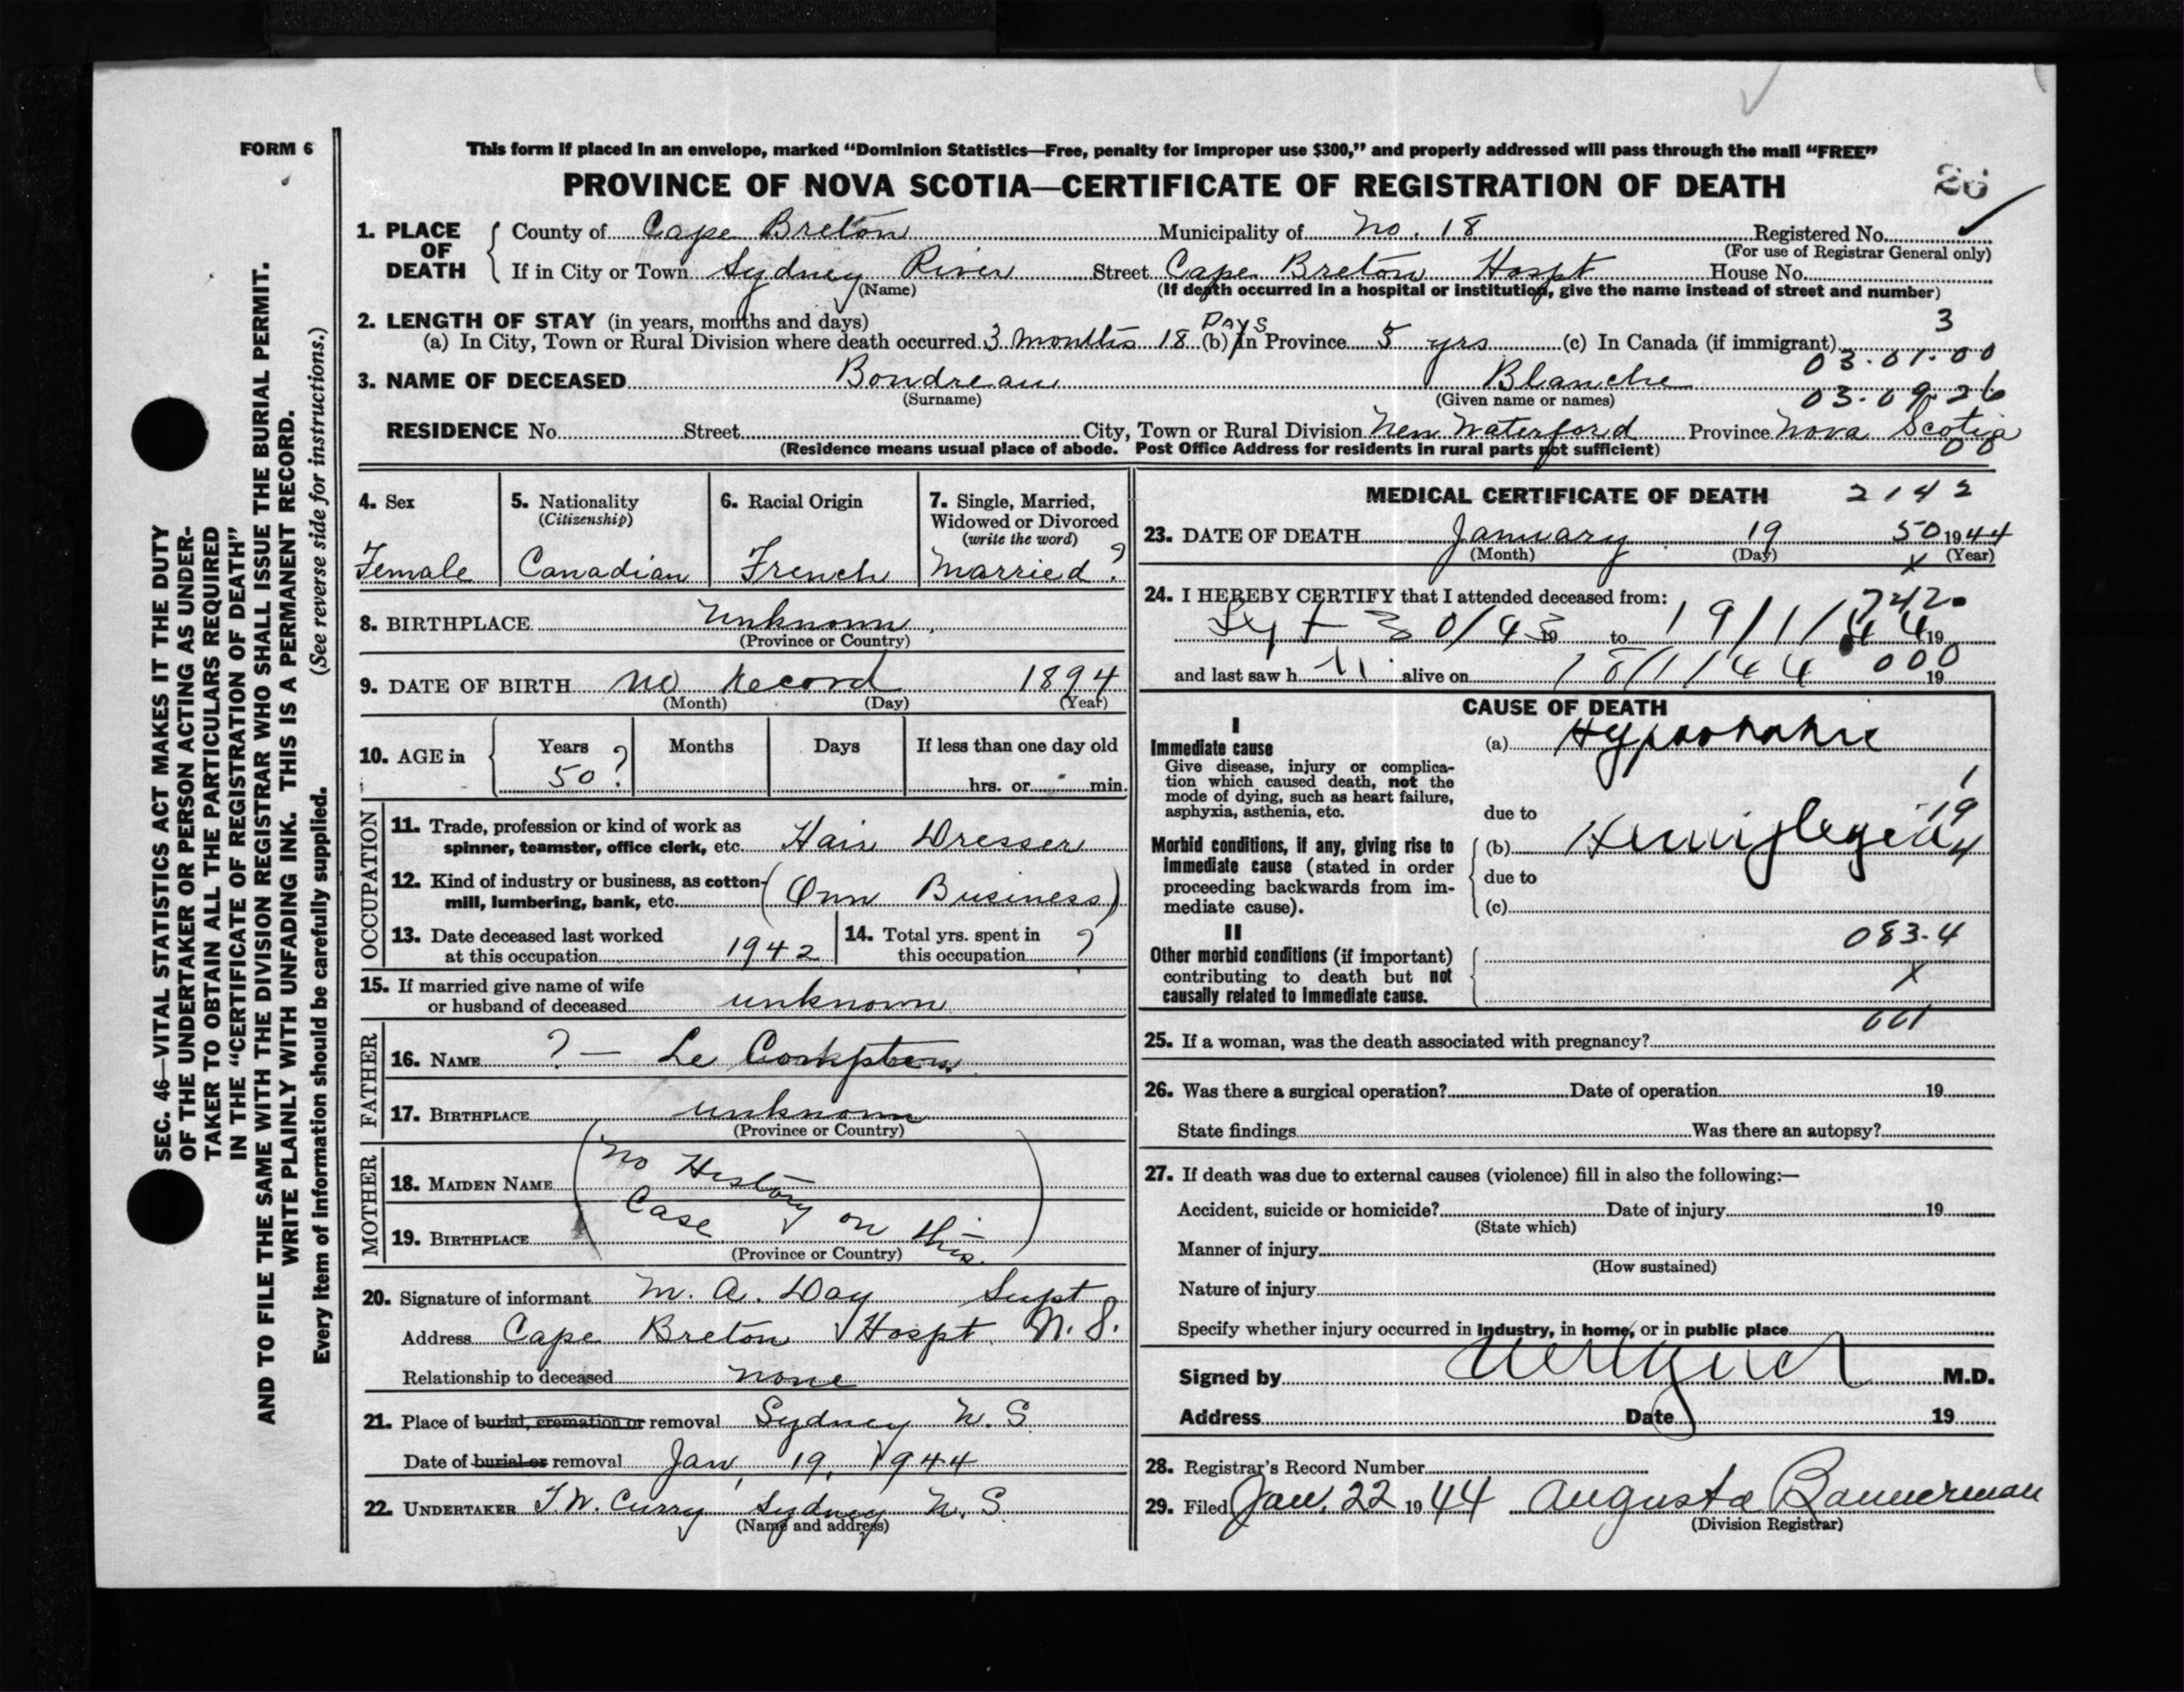 FORM 6
This form if placed in an envelope, marked “Dominion Statistics—Free, penalty for improper use $300,” and properly addressed will pass through the mail “FREE”
PROVINCE OF NOVA SCOTIA—CERTIFICATE OF REGISTRATION OF DEATH
26
1. PLACE OF DEATH
County of Cape Breton Municipality of No. 18 Registered No.
(For use of Registrar General only)
If in City or Town Sydney River Street Cape Breton Hospt House No.
(Name) (If death occurred in a hospital or institution, give the name instead of street and number)
2. LENGTH OF STAY (in years, months and days)
(a) In City, Town or Rural Division where death occurred 3 months 18 DAYS (b) In Province 5 yrs (c) In Canada (if immigrant)
3
03.01.00
3. NAME OF DECEASED Boudreau Blanche
(Surname) (Given name or names)
03.09.26
RESIDENCE No. Street City, Town or Rural Division New Waterford Province Nova Scotia
(Residence means usual place of abode. Post Office Address for residents in rural parts not sufficient)
00
4. Sex Female
5. Nationality (Citizenship) Canadian
6. Racial Origin French
7. Single, Married, Widowed or Divorced (write the word) Married ?
8. BIRTHPLACE Unknown
(Province or Country)
9. DATE OF BIRTH no record 1894
(Month) (Day) (Year)
10. AGE in Years 50 ? Months Days If less than one day old
hrs. or min.
OCCUPATION
11. Trade, profession or kind of work as
spinner, teamster, office clerk, etc. Hair Dresser
12. Kind of industry or business, as cotton-
mill, lumbering, bank, etc. (Own Business)
13. Date deceased last worked
at this occupation 1942
14. Total yrs. spent in
this occupation ?
15. If married give name of wife
or husband of deceased unknown
FATHER
16. NAME ? — Le
17. BIRTHPLACE unknown
(Province or Country)
MOTHER
18. MAIDEN NAME (No History
19. BIRTHPLACE Case on this)
(Province or Country)
20. Signature of informant M. A. Day Supt
Address Cape Breton Hospt. N.S.
Relationship to deceased none
21. Place of burial, cremation or removal Sydney N.S.
Date of burial or removal Jan. 19, 1944
22. UNDERTAKER T.W. Curry Sydney N.S.
(Name and address)
MEDICAL CERTIFICATE OF DEATH 2142
23. DATE OF DEATH January 19 50 1944
(Month) (Day) (Year)
x
24. I HEREBY CERTIFY that I attended deceased from:
242.
Sept 30/43 19 to 19/1/44 19
and last saw h alive on 18/1/44 19
000
CAUSE OF DEATH
I
Immediate cause
Give disease, injury or complica-
tion which caused death, not the
mode of dying, such as heart failure,
asphyxia, asthenia, etc.
(a) Hypostatic
due to
1
19
4
Morbid conditions, if any, giving rise to
immediate cause (stated in order
proceeding backwards from im-
mediate cause).
(b) Hemiplegia
due to
(c)
II
Other morbid conditions (if important)
contributing to death but not
causally related to immediate cause.
083.4
x
661
25. If a woman, was the death associated with pregnancy?
26. Was there a surgical operation? Date of operation 19
State findings Was there an autopsy?
27. If death was due to external causes (violence) fill in also the following:—
Accident, suicide or homicide? Date of injury 19
(State which)
Manner of injury
(How sustained)
Nature of injury
Specify whether injury occurred in industry, in home, or in public place
Signed by M.D.
Address Date 19
28. Registrar's Record Number
29. Filed Jan. 22 1944 Augusta Bannerman
(Division Registrar)
SEC. 46—VITAL STATISTICS ACT MAKES IT THE DUTY
OF THE UNDERTAKER OR PERSON ACTING AS UNDER-
TAKER TO OBTAIN ALL THE PARTICULARS REQUIRED
IN THE “CERTIFICATE OF REGISTRATION OF DEATH”
AND TO FILE THE SAME WITH THE DIVISION REGISTRAR WHO SHALL ISSUE THE BURIAL PERMIT.
WRITE PLAINLY WITH UNFADING INK. THIS IS A PERMANENT RECORD.
Every item of information should be carefully supplied. (See reverse side for instructions.)